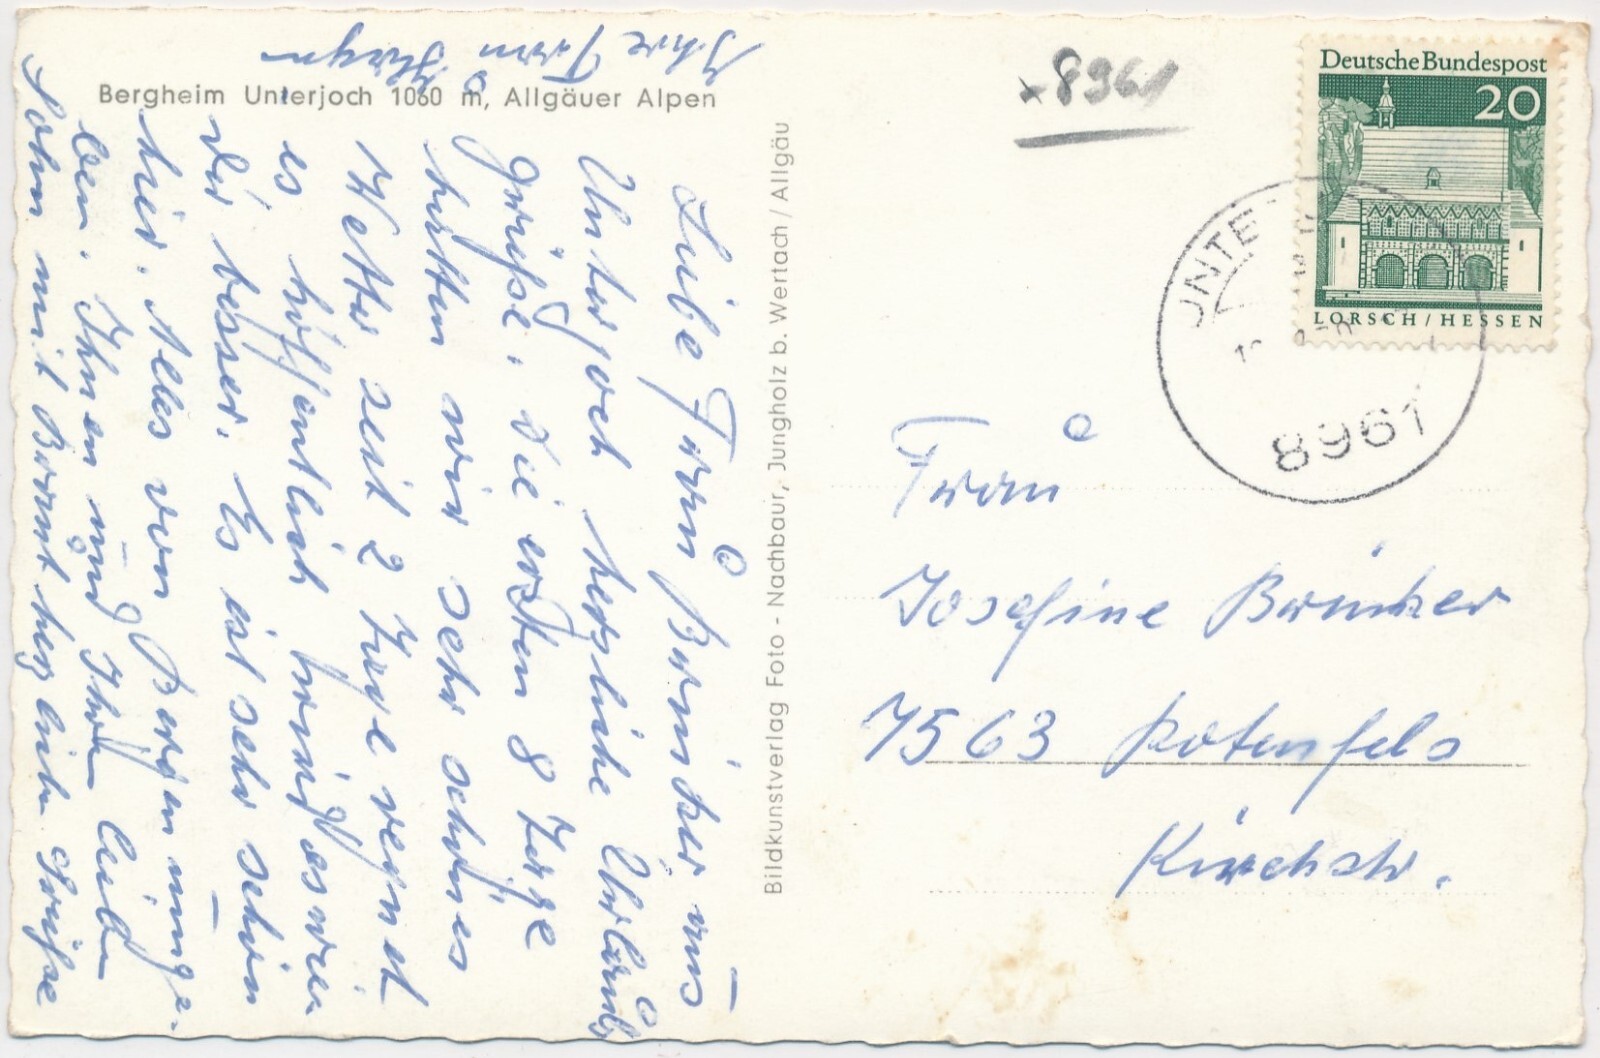 Bergheim Unterjoch 1060 m, Allgäuer Alpen
Liebe Frau Brünker aus
Unterjoch herzliche Urlaubs
grüße. Die ersten 8 Tage
hatten wir sehr schönes
Wetter seit 2 Tage regnet
es hoffentlich wird es wie
der besser. Es ist sehr schön
hier. Alles von Bergen umge-
ben. Ihnen und Ihrem lieben
Sohn mit Braut herzliche Grüße
Ihre Frau
Bildkunstverlag Foto - Nachbaur, Jungholz b. Wertach / Allgäu
8961
Deutsche Bundespost
20
LORSCH / HESSEN
UNTE
8961
Frau
Josefine Brünker
7563 Rotenfels
Kirchstr.